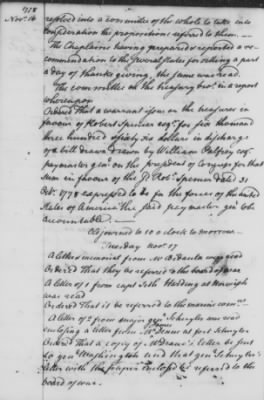 1778
Nov. 16
resolved into a committee of the whole to take into
consideration the propositions referred to them.
The Chaplains having prepared & reported a re-
commendation to the several states for setting apart
a day of thanksgiving, the same was read.
The committee on the treasury bro't in a report
whereupon
Ordered that a warrant issue on the treasurer in
favour of Robert esqr. for five thousand
three hundred & fifty six dollars in discharge
of a bill drawn by William Palfrey esq
paymaster genl. on the president of Congress for that
sum in favour of the dated 31
Octr. 1778 expressed to be for the forces of the united
states of America the said paymaster genl. to be
accountable.
Adjourned to 10 o'clock to morrow.
Tuesday Novr. 17
A letter & memorial from Mr was read
Ordered That they be referred to the board of war
A letter of 1 from capt Seth Harding at Norwich
was read
Ordered That it be referred to the marine comee.
A letter of 9 from major genl Schuyler was read
enclosing a letter from Mr James Deane at fort Schuyler
Ordered That a copy of Mr Deane's letter be sent
to genl Washington and that genl Schuyler's
letter with the papers enclosed be referred to the
board of war.